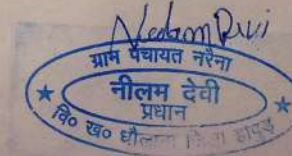 Neelam Devi
ग्राम पंचायत नरैना
नीलम देवी
प्रधान
वि० ख० धौलाना जिला हापुड़